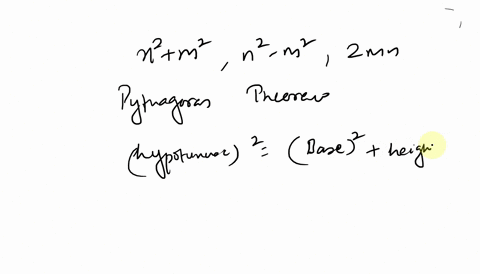 n²+m², n²-m², 2mn
Pythagoras Theorem
(hypotenuse)² = (Base)² + heigh